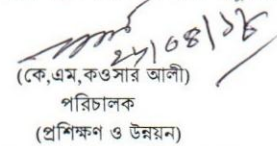 ২৮/০৪/১৮
(কে,এম,কওসার আলী)
পরিচালক
(প্রশিক্ষণ ও উন্নয়ন)